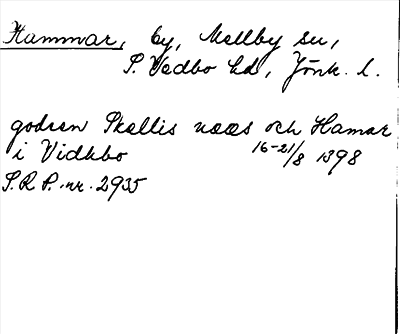 Hammar, by, Mellby sn,
S. Vedbo hd, Jönk. l.
godsen Skellis næs och Hamar
i Vidhbo 16-21/8 1398
S.R.P. nr. 2935